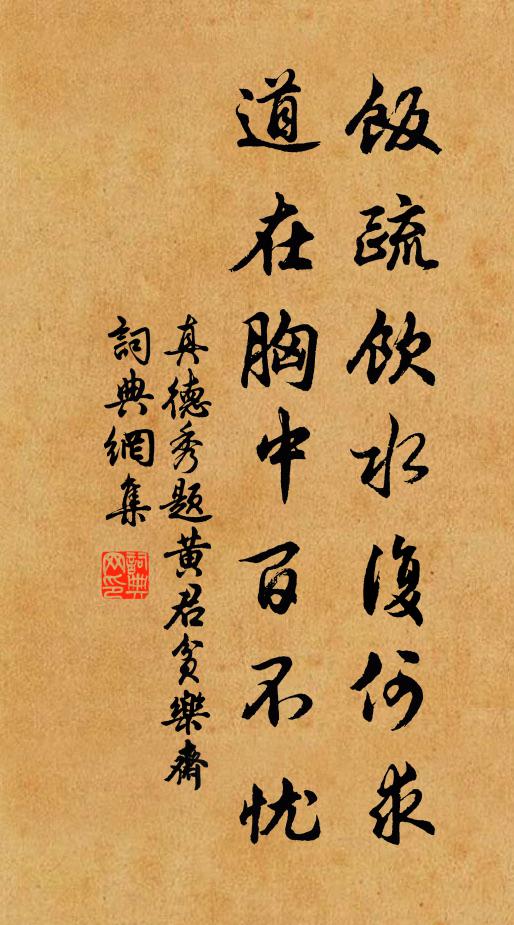 飯疏飲水復何求
道在胸中百不忧
真德秀题黄君貧樂齋
詞典網集
詞典
网印